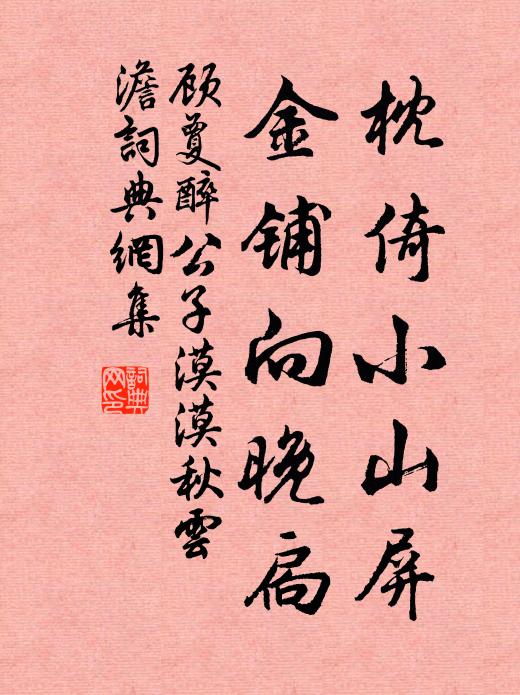 枕倚小山屏
金铺向晚扃
顾夐醉公子漠漠秋雲
澹詞典網集
詞典
网印